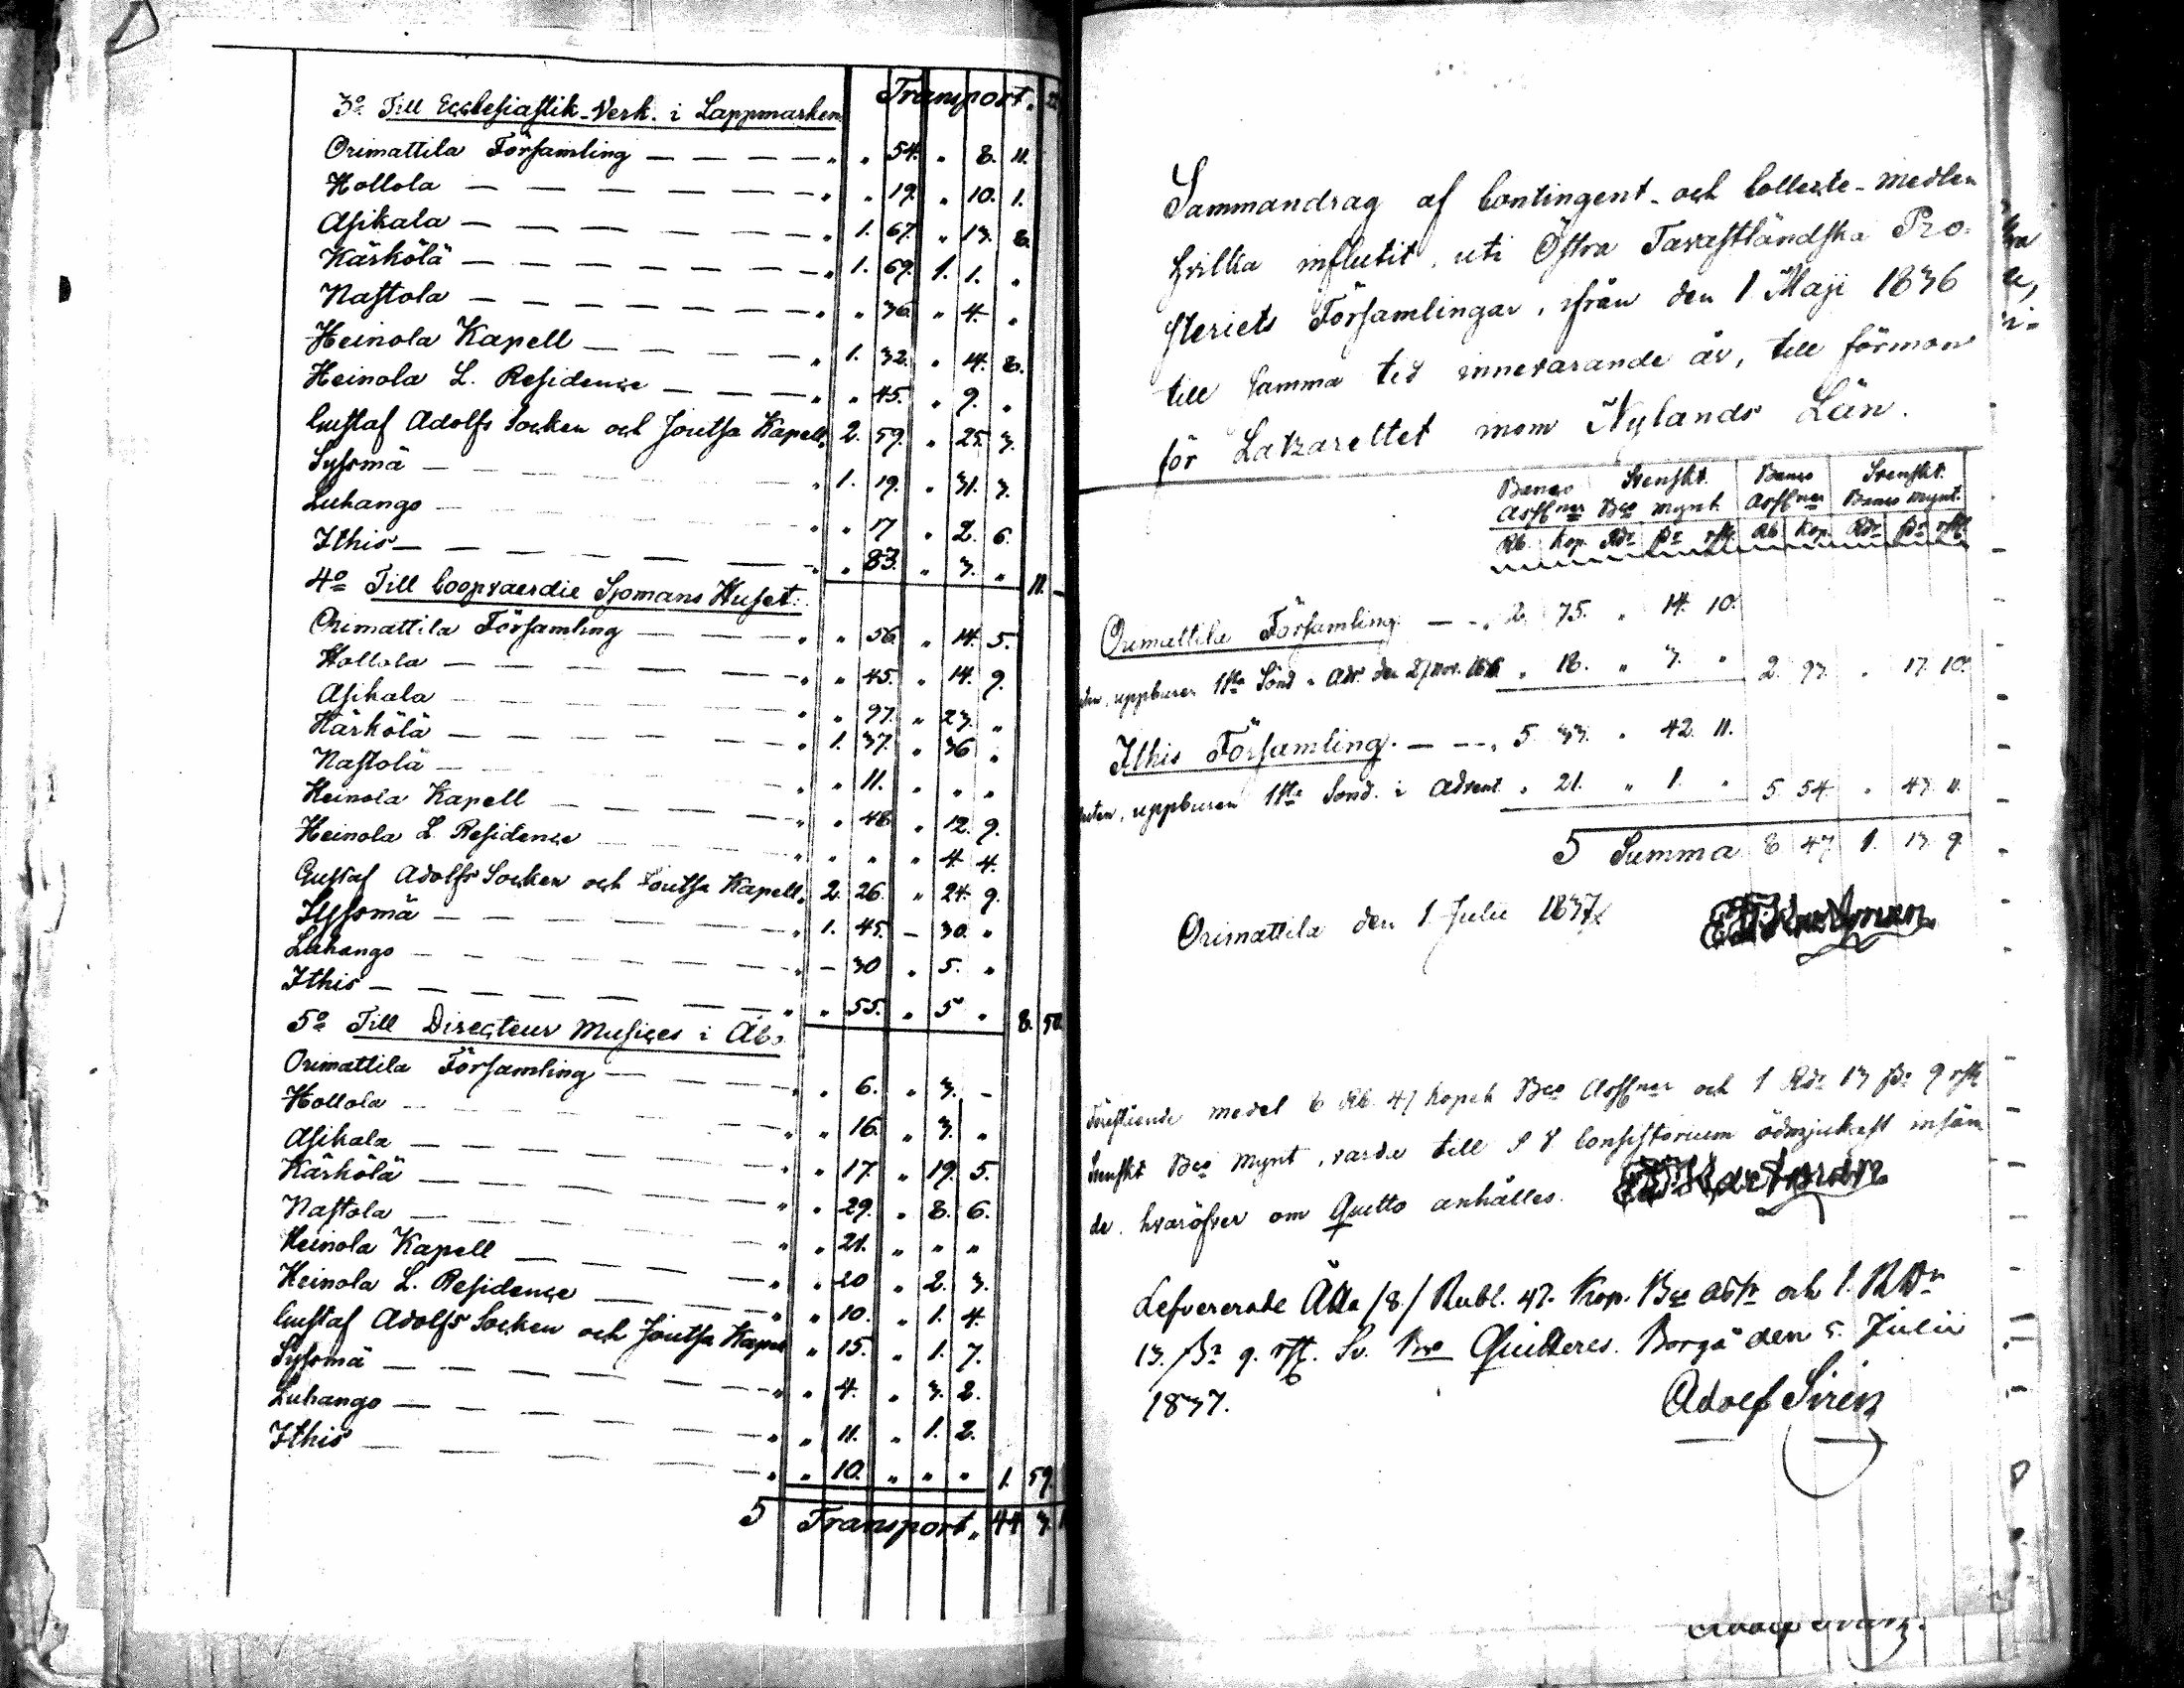 Transport.
3:o Till Ecclesiastik-Verk. i Lappmarken
Orimattila Församling — — — — " " 54. " 8. 11.
Hollola — — — — — — " " 19. " 10. 1.
Asikala — — — — — — " 1. 67. " 13. 8.
Kärkölä — — — — — — " 1. 69. 1. 1. "
Nastola — — — — — — " " 36. " 4. "
Heinola Kapell — — — — " 1. 32. " 14. 8.
Heinola L. Residence — — — " " 45. " 9. "
Gustaf Adolfs Socken och Joutsa Kapell " 2. 59. " 25. 3.
Sysmä — — — — " 1. 19. " 31. 3.
Luhango — — — — " " 17 " 2. 6.
Ithis — — — — — " " 83. " 3. " 11. —
4:o Till Coopvaerdie Sjomans Huset.
Orimattila Församling — — — " " 56. " 14. 5.
Hollola — — — — — " " 45. " 14. 9.
Asikala — — — — — " " 97. " 23. "
Kärkölä — — — — — " 1. 37. " 36 "
Nastola — — — — — " " 11. " " "
Heinola Kapell — — — — " " 48. " 12. 9.
Heinola L. Residence — — — " " " " 4 4.
Gustaf Adolfs Socken och Joutsa Kapell " 2. 26. " 24. 9.
Sysmä — — — — — " 1. 45. — 30. "
Luhango — — — — — " — 30 " 5. "
Ithis — — — — — " " 55. " 5 " 8. 50.
5:o Till Directeur Musices i Åbo
Orimattila Församling — — — " " 6. " 3. —
Hollola — — — — — " " 16. " 3. "
Asikala — — — — — " " 17. " 19. 5.
Kärkölä — — — — — " " 29. " 8. 6.
Nastola — — — — — " " 21. " " "
Heinola Kapell — — — — " " 20 " 2. 3.
Heinola L. Residence — — — " " 10. " 1. 4.
Gustaf Adolfs Socken och Joutsa Kapell " 15. " 1. 7.
Sysmä — — — — — " " 4. " 3. 2.
Luhango — — — — — " " 11. " 1. 2.
Ithis — — — — — " " 10. " " " 1. 59.
Transport " 44 3.
Sammandrag af Contingent- och Collecte-medlen
hvilka influtit, uti Östra Tavastländska Pro-
steriets Församlingar, ifrån den 1 Maji 1836
till samma tid innevarande år, till förmon
för Latzarettet inom Nylands Län.
Banco Svenskt Banco Svenskt
Assnr Bco mynt. Assnr Banco mynt.
Rb. Kop. Rdr sr rst. Rb Kop. Rdr sr rst
Orimattila Församling — — " 2. 75. " 14. 10.
uppburen 1sta Sönd. i Adv. den 27 nov. 1836 " 18. " 3. " 2. 93. " 17. 10.
Ithis Församling. — — " 5. 33. " 42. 11.
uppburen 1sta Sönd. i Advent " 21. " 1. " 5. 54. " 43. 11.
Summa 8 47 1. 13 9
Orimattila den 1 Julii 1837
medel 8 Rb. 47 kopek Bco Assnr och 1 Rdr 13 sr 9 rst
Svenskt Bco mynt, varde till Consistorium ödmjukast insän
de, hvaröfver om Quitto anhålles.
Lefvererade Åtta /8/ Rubl. 47. Kop. Bco Assr och 1. RDr
13. sr 9. rst. Sv. Bco Quitteres. Borgå den 5. Julii
1837.
Adolf Sirén